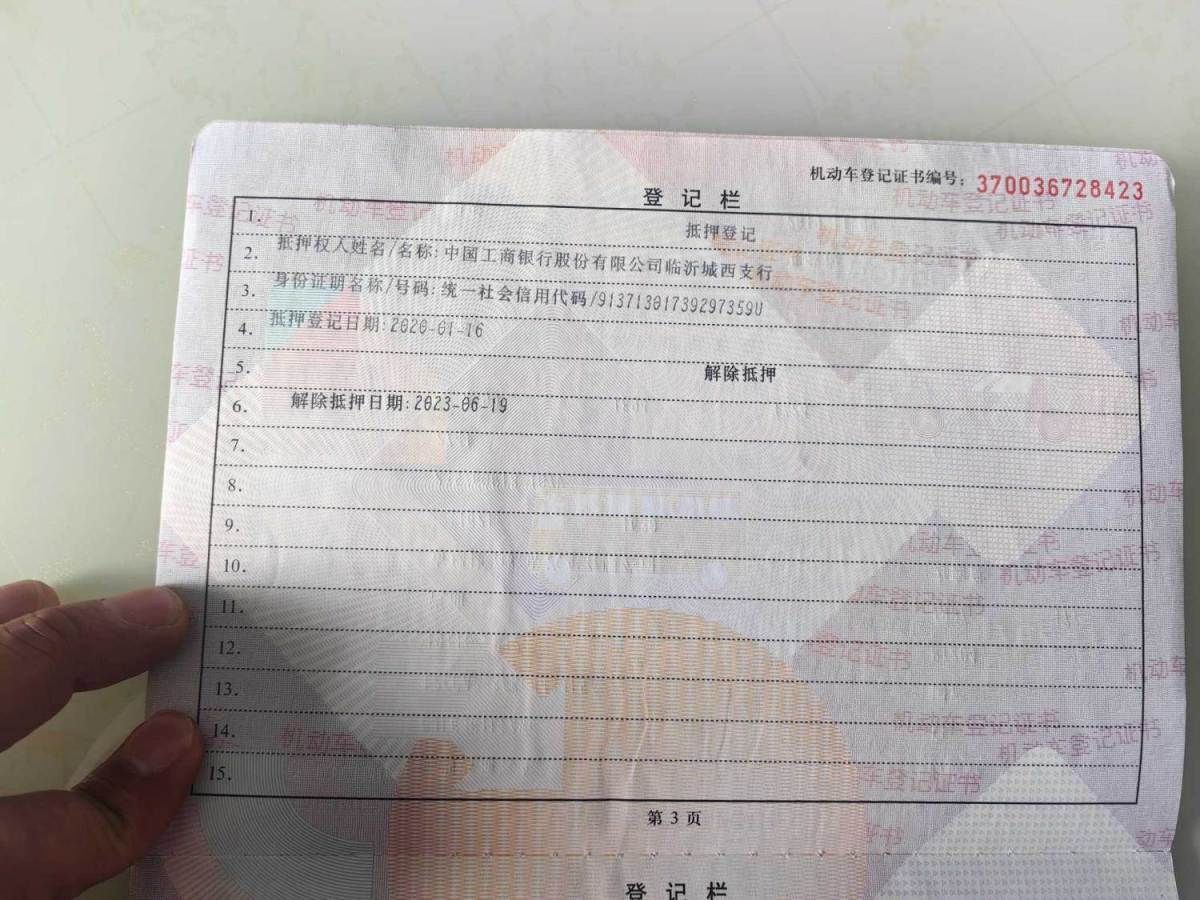 机动车登记证书编号：370036728423
登记栏
1. 抵押登记
2. 抵押权人姓名/名称:中国工商银行股份有限公司临沂城西支行
3. 身份证明名称/号码:统一社会信用代码/91371301739297359U
4. 抵押登记日期:2020-01-16
5. 解除抵押
6. 解除抵押日期:2023-06-19
7.
8.
9.
10.
11.
12.
13.
14.
15.
第 3 页
登记栏